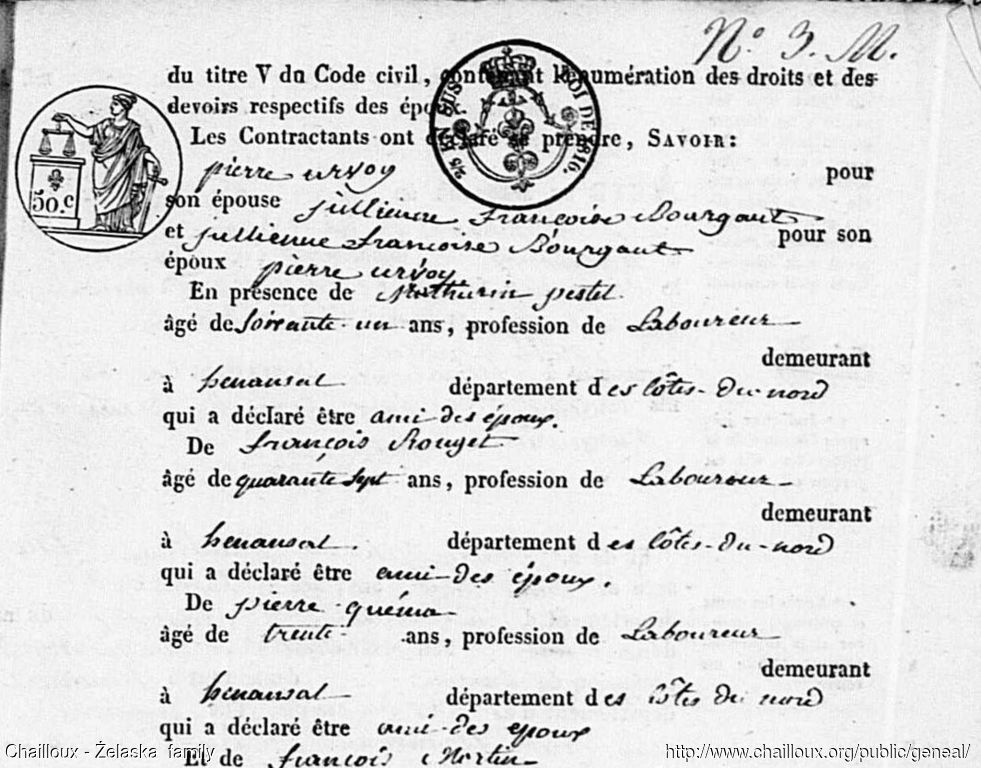 N.º 3. M.
du titre V du Code civil, contenant l'énumération des droits et des
devoirs respectifs des époux.
Les Contractants ont déclaré se prendre, SAVOIR:
50.c
LOI DE 1816.
pierre urvoy pour
son épouse jullienne françoise Bourgaut
et jullienne françoise Bourgaut pour son
époux pierre urvoy
En présence de Mathurin pestel
âgé de Soixante-un ans, profession de Laboureur
demeurant
à henansal département des côtes-du-nord
qui a déclaré être ami des époux.
De françois Rouget
âgé de quarante Sept ans, profession de Laboureur
demeurant
à henansal. département des côtes-du-nord
qui a déclaré être ami des époux.
De pierre quéma
âgé de trente ans, profession de Laboureur
demeurant
à henansal département des côtes du nord
qui a déclaré être ami des époux
Et de françois Mortin
Chailloux - Żelaska family
http://www.chailloux.org/public/geneal/